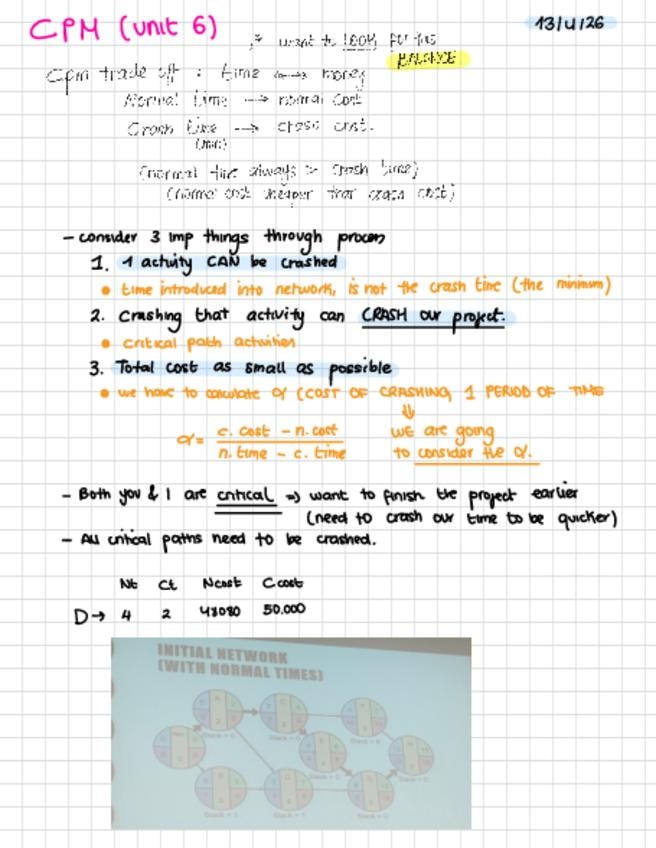 CPM (unit 6)
13/4/26
* want to LOOK for this
BALANCE
Cpm trade off : time ↔ money
Normal time → normal cost
Crash time → crash cost.
(min)
(normal time always > crash time)
(normal cost cheaper than crash cost)
- consider 3 imp things through process
1. 1 activity CAN be crashed
• time introduced into network, is not the crash time (the minimum)
2. Crashing that activity can CRASH our project.
• critical path activities
3. Total cost as small as possible
• we have to calculate α (COST OF CRASHING 1 PERIOD OF TIME
⇓
α = c. cost - n. cost
n. time - c. time
WE are going
to consider the α.
- Both you & I are critical ⇒ want to finish the project earlier
(need to crash our time to be quicker)
- All critical paths need to be crashed.
Nt Ct Ncost Ccost
D → 4 2 48000 50.000
INITIAL NETWORK
(WITH NORMAL TIMES)